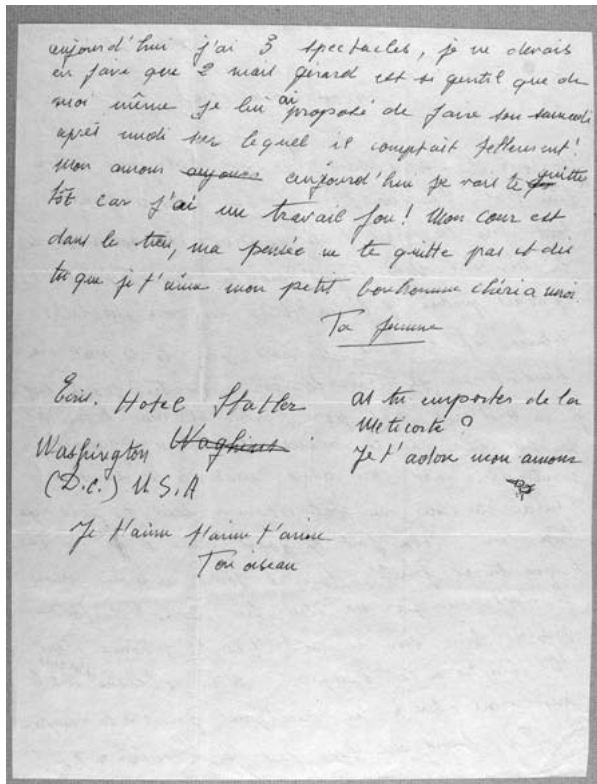 aujourd'hui j'ai 3 spectacles, je ne devais
en faire que 2 mais gérard est si gentil que de
moi même je lui ai proposé de faire son samedi
après midi sur lequel il comptait tellement!
mon amour aujourd'hui je vais te quitte
tôt car j'ai un travail fou! Mon cœur est
dans le tien, ma pensée ne te quitte pas et dis
tu que je t'aime mon petit bonhomme chéri a moi.
Ta femme
Ecris. Hotel Statler
Washington
(D.C.) U.S.A
as tu emporter de la
Meticorte?
Je t'adore mon amour
Je t'aime t'aime t'aime
Ton oiseau